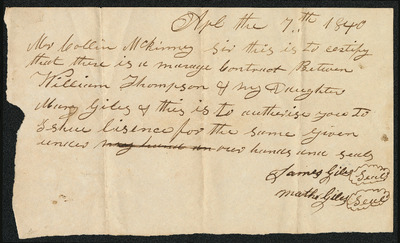 Apl the 7th 1840
Mr Collin McKinney Sir this is to certify
that there is a marage Contract Between
William Thompson & my Daughter
Mary Giles & this is to authorise you to
Eshue lisence for the same given
under my hand an our hands and seals
James Giles Seal
Giles Seal